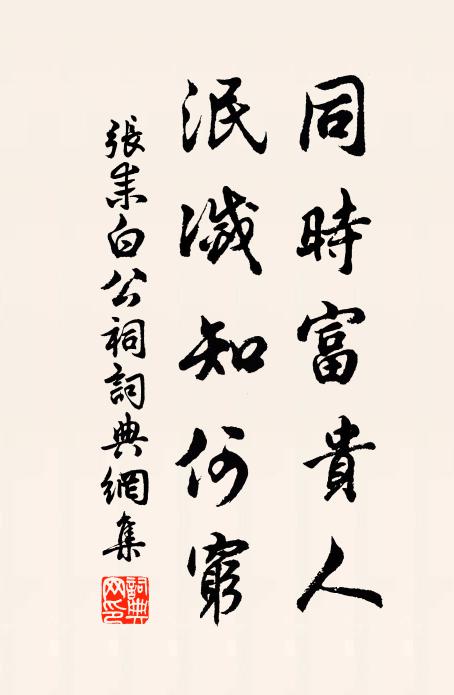 同時富貴人
泯滅知何窮
張耒白公祠詞典網集
詞典网印